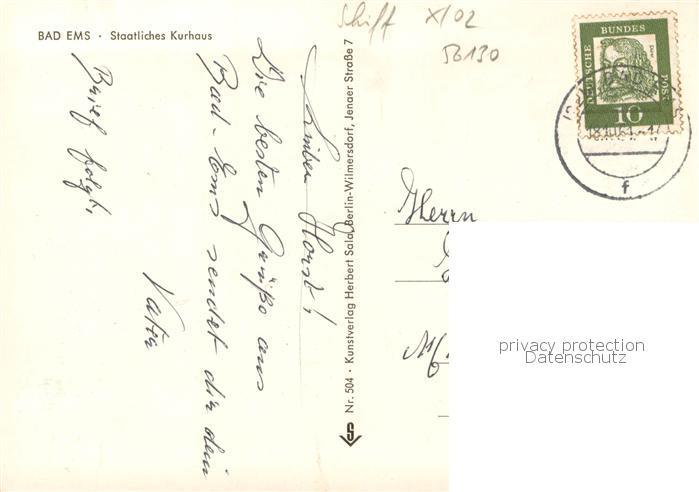 BAD EMS · Staatliches Kurhaus
Schiff XI02
56130
DEUTSCHE BUNDES POST
Dürer
10
18.10.61.-17
f
Lieber Horst!
Die besten Grüße aus
Bad-Ems sendet dir dein
Vater
Brief folgt.
Nr. 504 · Kunstverlag Herbert Sala, Berlin-Wilmersdorf, Jenaer Straße 7
Herrn
privacy protection
Datenschutz